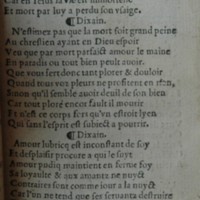 Et mort par luy a perdu son vsaige.
¶Dixain.
N'estimez pas que la mort soit grand peine
Au chrestien ayant en Dieu espoir
Veu que par mort parfaict amour le maine
En paradis ou tout bien peult auoir.
Que vous sert donc tant plorer & douloir
Quand tous voz pleurs ne profitent en rien,
Sinon qu'il semble auoir deuil de son bien
Car tout ploré encor fault il mourir
Et n'est ce corps fors qu'vn estroit lyen
Qui sans l'esprit est subiect a pourrir.
¶Dixain.
Amour lubricq est inconstant de soy
Et desplaisir procure a qui le suyt
Amour pudiq maintient en ferme foy
Sa loyaulté & aux amants ne nuyct
Contraires sont comme iour a la nuyct
Car l'un ne tend que ses seruants destruire